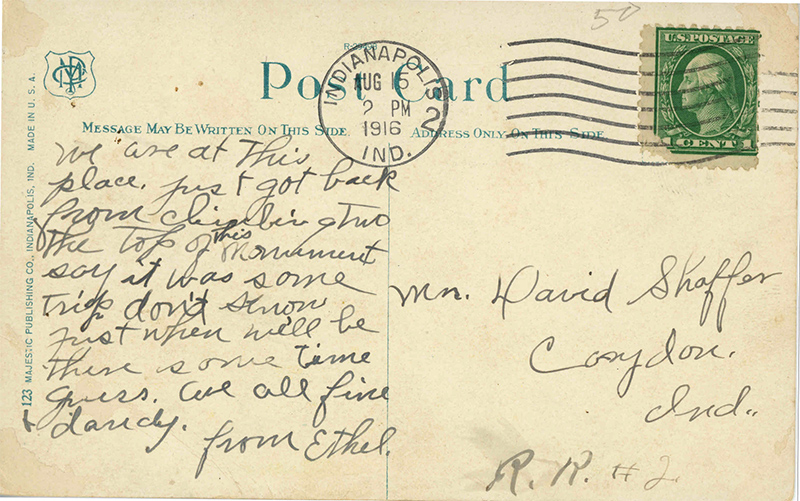 50
Post Card
INDIANAPOLIS 2
AUG 6
2 PM
1916
IND.
U.S. POSTAGE
1 CENT 1
MESSAGE MAY BE WRITTEN ON THIS SIDE.
ADDRESS ONLY ON THIS SIDE
123 MAJESTIC PUBLISHING CO., INDIANAPOLIS, IND. MADE IN U. S. A.
We are at this
place. just got back
from climbing two
the top of this Monument
say it was some
trip don't know
just when will be
there some time
guess. are all fine
& dandy.
from Ethel.
Mr. David Shaffer
Corydon.
Ind.
R. R. #2